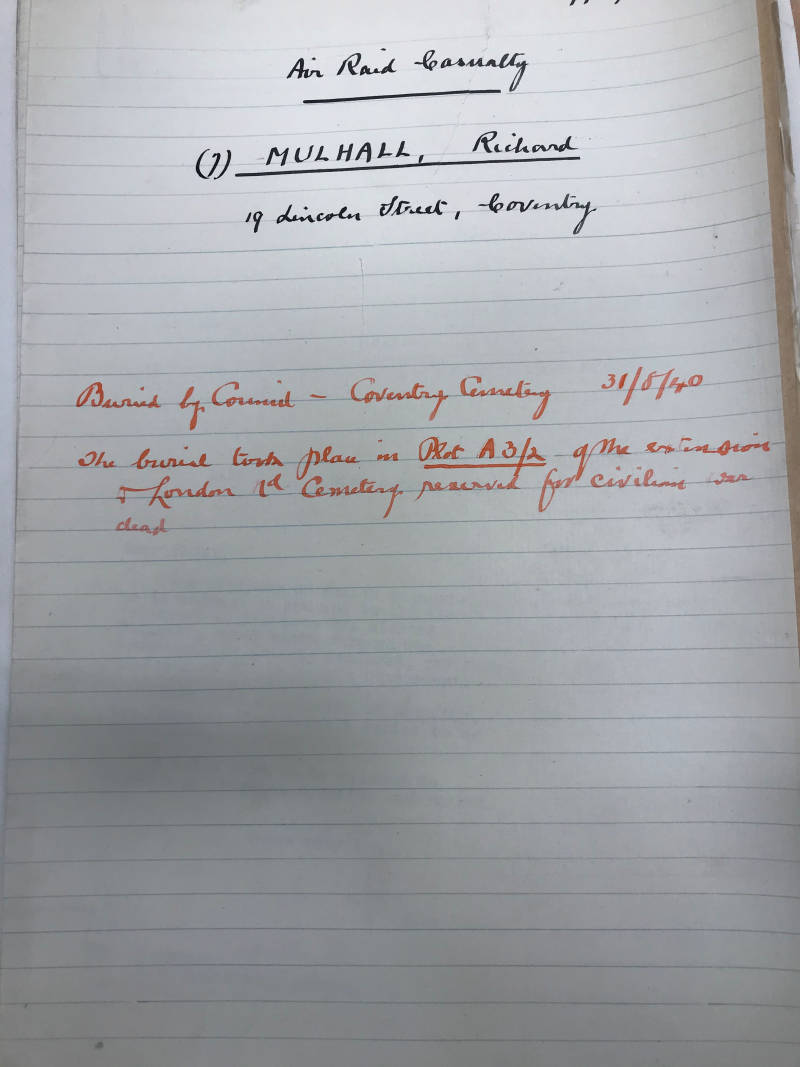 Air Raid Casualty
(7) MULHALL, Richard
19 Lincoln Street, Coventry
Buried by Council - Coventry Cemetery 31/8/40
The burial took place in Plot A3/2 of the extension
London Rd Cemetery reserved for civilian war
dead